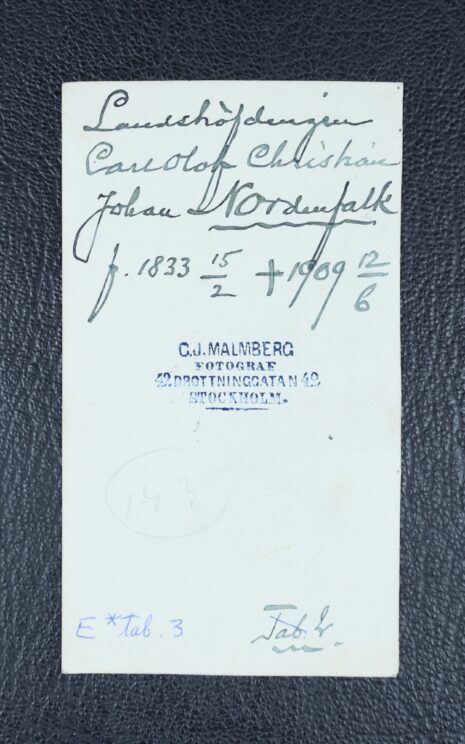 Landshöfdingen
Carl Olof Christian
Johan Nordenfalk
f. 1833 15/2 † 1909 12/6
C.J. MALMBERG
FOTOGRAF
42 DROTTNINGGATAN 42
STOCKHOLM.
E* tab. 3
Tab.